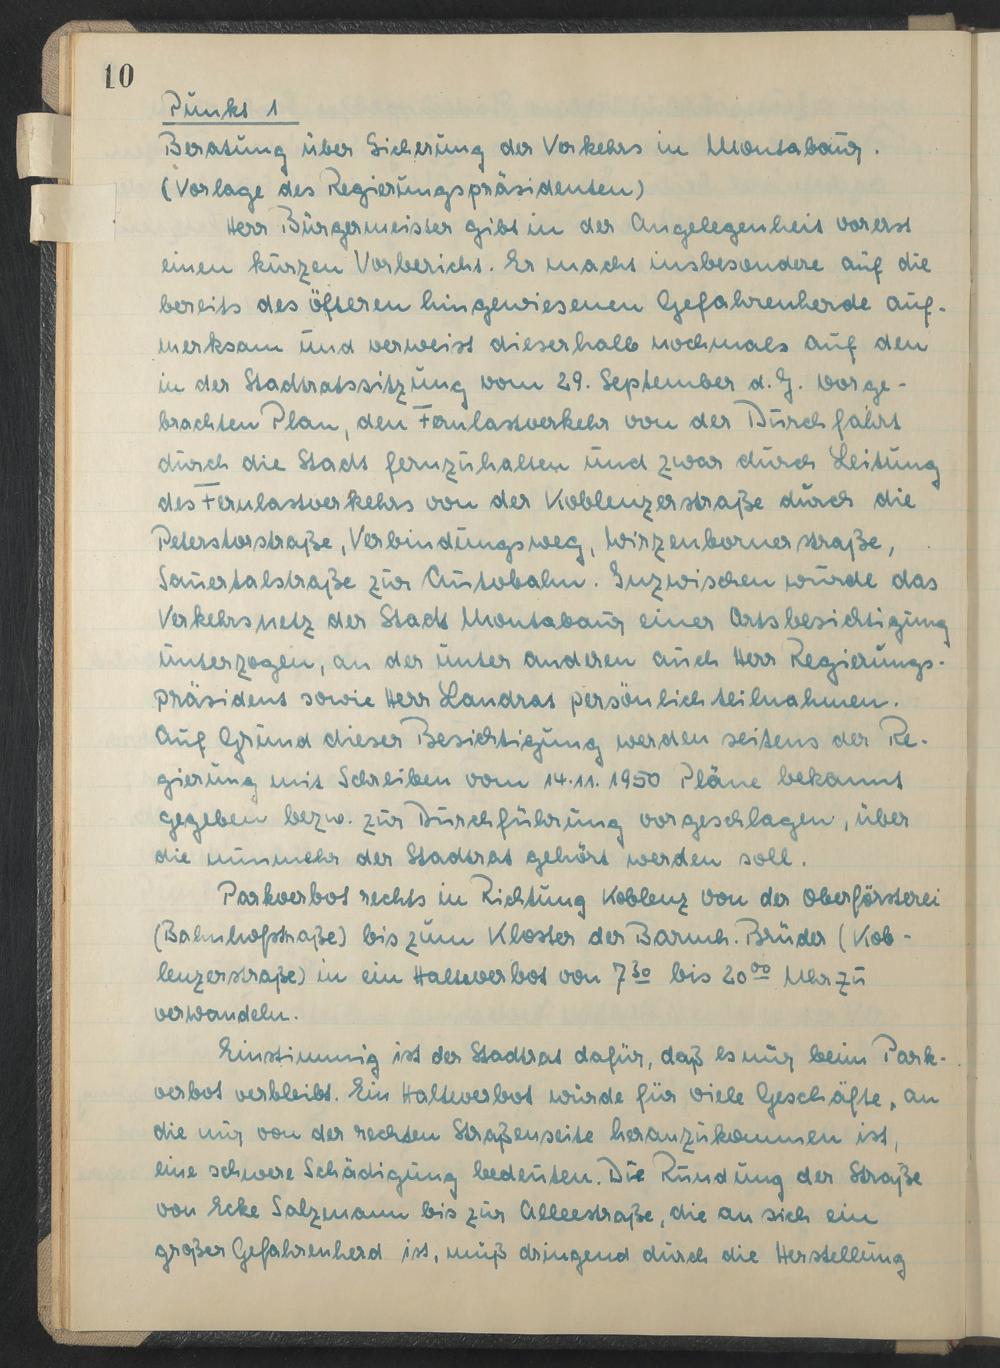 10
Punkt 1
Beratung über Sicherung des Verkehrs in Montabaur.
(Vorlage des Regierungspräsidenten)
Herr Bürgermeister gibt in der Angelegenheit vorerst
einen kurzen Vorbericht. Er macht insbesondere auf die
bereits des öfteren hingewiesenen Gefahrenherde auf-
merksam und verweist dieserhalb nochmals auf den
in der Stadtratssitzung vom 29. September d. J. vorge-
brachten Plan, den Fernlastverkehr von der Durchfahrt
durch die Stadt fernzuhalten und zwar durch Leitung
des Fernlastverkehrs von der Koblenzerstraße durch die
Peterstorstraße, Verbindungsweg, Wirzenbornerstraße,
Sauertalstraße zur Autobahn. Inzwischen wurde das
Verkehrsnetz der Stadt Montabaur einer Ortsbesichtigung
unterzogen, an der unter anderen auch Herr Regierungs-
präsident sowie Herr Landrat persönlich teilnahmen.
Auf Grund dieser Besichtigung werden seitens der Re-
gierung mit Schreiben vom 14.11.1950 Pläne bekannt
gegeben bezw. zur Durchführung vorgeschlagen, über
die nunmehr der Stadtrat gehört werden soll.
Parkverbot rechts in Richtung Koblenz von der Oberförsterei
(Bahnhofstraße) bis zum Kloster der Barmh. Brüder (Kob-
lenzerstraße) in ein Halteverbot von 7³⁰ bis 20⁰⁰ Uhr zu
verwandeln.
Einstimmig ist der Stadtrat dafür, daß es nur beim Park-
verbot verbleibt. Ein Halteverbot würde für viele Geschäfte, an
die nur von der rechten Straßenseite heranzukommen ist,
eine schwere Schädigung bedeuten. Die Rundung der Straße
von Ecke Salzmann bis zur Alleestraße, die an sich ein
großer Gefahrenherd ist, muß dringend durch die Herstellung